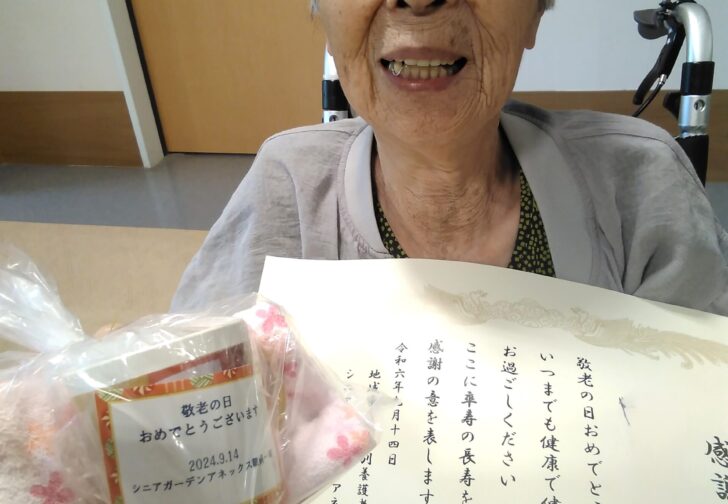 感
敬老の日おめでとう
いつまでも健康で健
お過ごしください
ここに卒寿の長寿を
感謝の意を表します
令和六年九月十四日
地域
別養護
敬老の日
おめでとうございます
2024.9.14
シニアガーデンアネックス